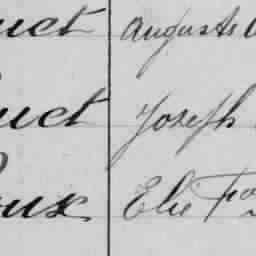 uct Auguste
uct Joseph
oux Elie Fr